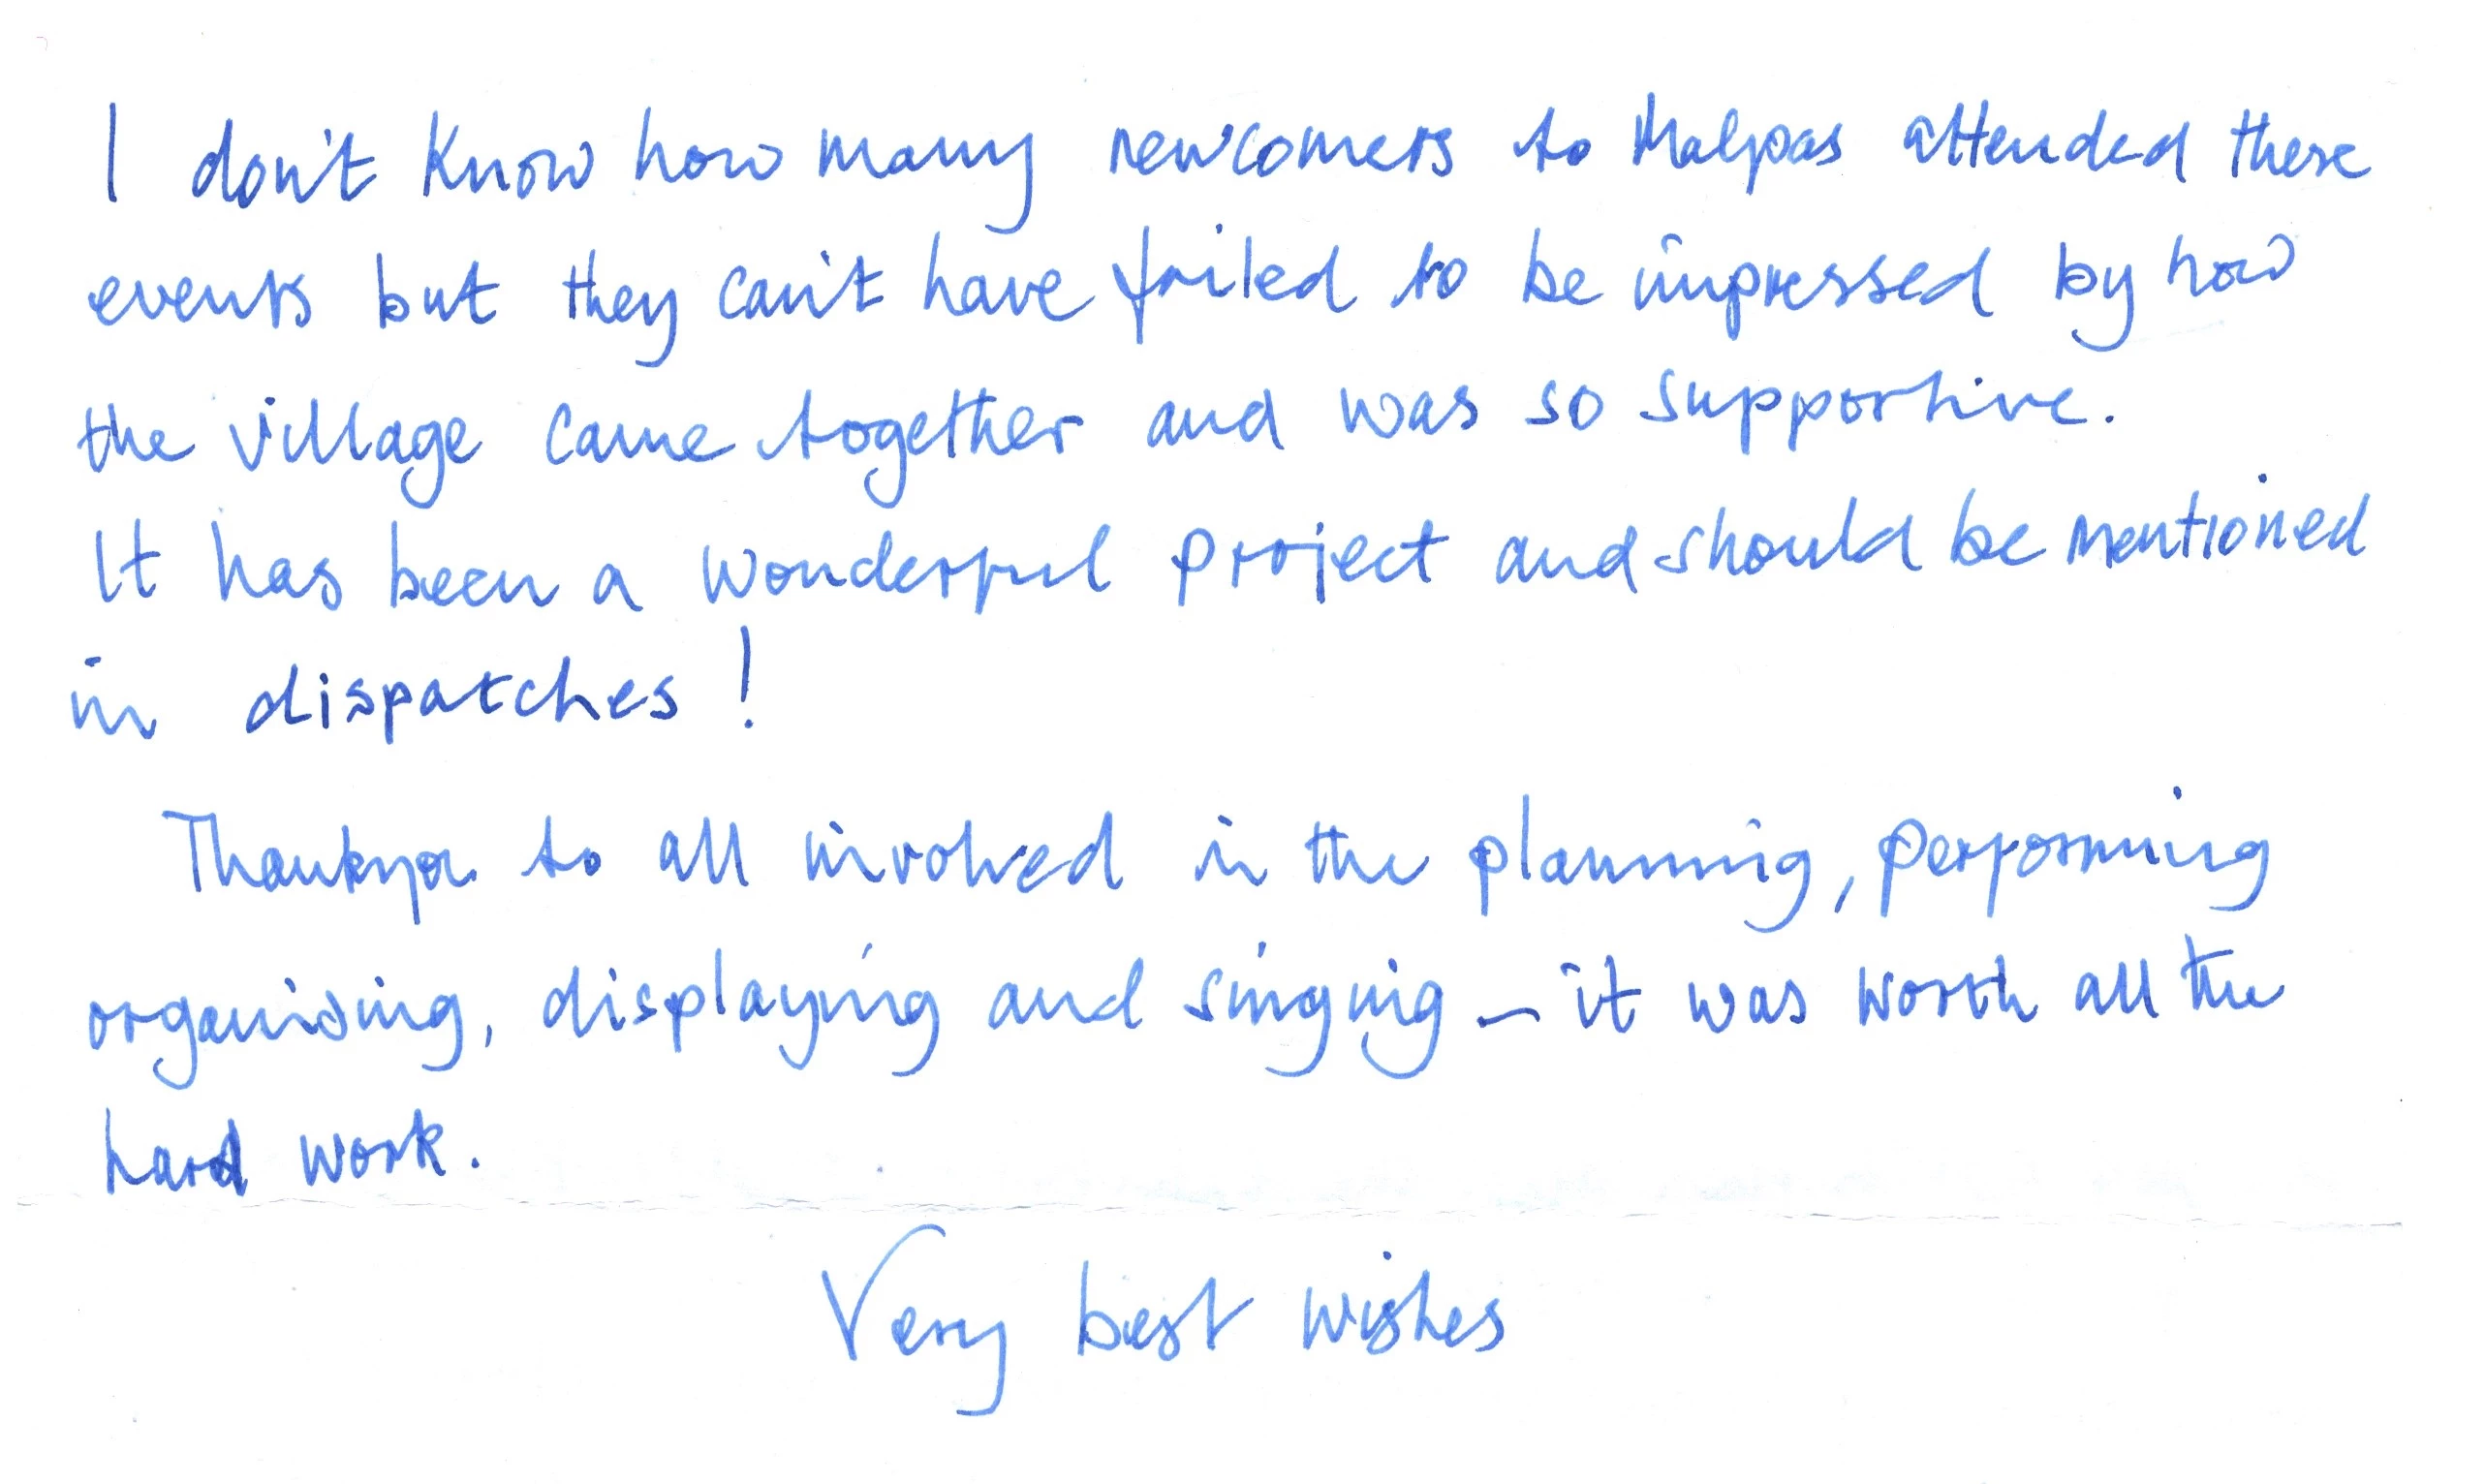 I don't know how many newcomers to Malpas attended these
events but they can't have failed to be impressed by how
the village came together and was so supportive.
It has been a wonderful project and should be mentioned
in dispatches!
Thankyou to all involved in the planning, performing
organising, displaying and singing - it was worth all the
hard work.
Very best wishes